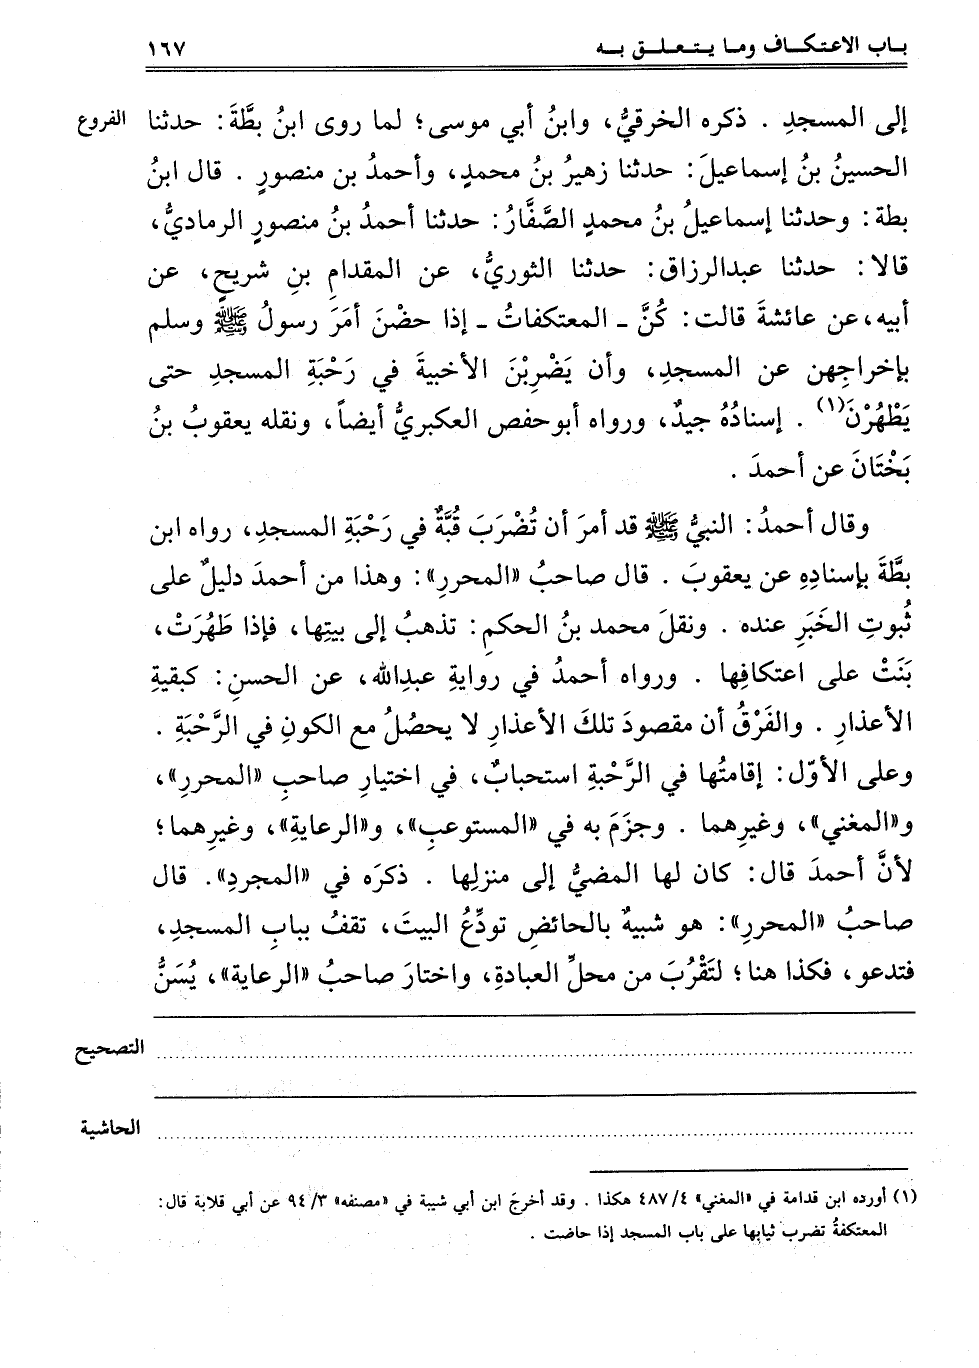 باب الاعتكاف وما يتعلق به ١٦٧
إلى المسجدِ . ذكره الخرقيُّ، وابنُ أبي موسى؛ لما روى ابنُ بطَّةَ: حدثنا الفروع
الحسينُ بنُ إسماعيلَ: حدثنا زهيرُ بنُ محمدٍ، وأحمدُ بن منصورٍ . قال ابنُ
بطة: وحدثنا إسماعيلُ بنُ محمدٍ الصَّفَّارُ: حدثنا أحمدُ بنُ منصورٍ الرماديُّ،
قالا: حدثنا عبدالرزاق: حدثنا الثوريُّ، عن المقدامِ بنِ شريحٍ، عن
أبيه، عن عائشةَ قالت: كُنَّ ـ المعتكفاتُ ـ إذا حضْنَ أمَرَ رسولُ ﷺ وسلم
بإخراجِهن عن المسجدِ، وأن يَضْرِبْنَ الأخبيةَ في رَحْبَةِ المسجدِ حتى
يَطْهُرْنَ(١) . إسنادُهُ جيدٌ، ورواه أبوحفص العكبريُّ أيضاً، ونقله يعقوبُ بنُ
بَخْتَانَ عن أحمدَ .
وقال أحمدُ: النبيُّ ﷺ قد أمرَ أن تُضْرَبَ قُبَّةٌ في رَحْبَةِ المسجدِ، رواه ابن
بطَّةَ بإسنادِهِ عن يعقوبَ . قال صاحبُ «المحررِ»: وهذا من أحمدَ دليلٌ على
ثُبوتِ الخَبَرِ عنده . ونقلَ محمد بنُ الحكمِ: تذهبُ إلى بيتِها، فإذا طَهُرَتْ،
بَنَتْ على اعتكافِها . ورواه أحمدُ في روايةِ عبدِالله، عن الحسنِ: كبقيةِ
الأعذارِ . والفَرْقُ أن مقصودَ تلكَ الأعذارِ لا يحصُلُ مع الكونِ في الرَّحْبَةِ .
وعلى الأوّل: إقامتُها في الرَّحْبةِ استحبابٌ، في اختيارِ صاحبِ «المحررِ»،
و«المغني»، وغيرِهما . وجزَمَ به في «المستوعبِ»، و«الرعايةِ»، وغيرِهما؛
لأنَّ أحمدَ قال: كان لها المضيُّ إلى منزلِها . ذكرَه في «المجردِ». قال
صاحبُ «المحررِ»: هو شبيهٌ بالحائضِ تودِّعُ البيتَ، تقفُ ببابِ المسجدِ،
فتدعو، فكذا هنا؛ لتَقْرُبَ من محلِّ العبادةِ، واختارَ صاحبُ «الرعاية»، يُسَنُّ
التصحيح
الحاشية
(١) أورده ابن قدامة في «المغني» ٤٨٧/٤ هكذا . وقد أخرجَ ابن أبي شيبة في «مصنفه» ٩٤/٣ عن أبي قلابة قال:
المعتكفةُ تضرب ثيابها على باب المسجد إذا حاضت .